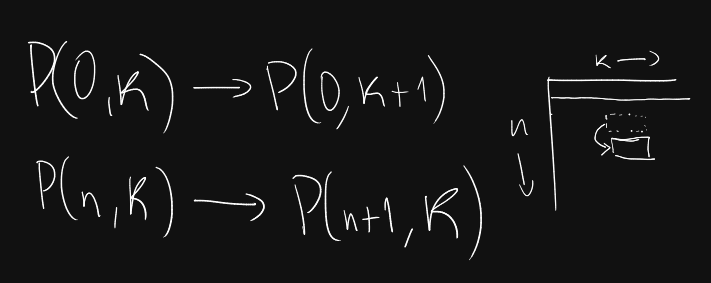 P(0,K) → P(0,K+1)
P(n,K) → P(n+1,K)
K →
n
↓